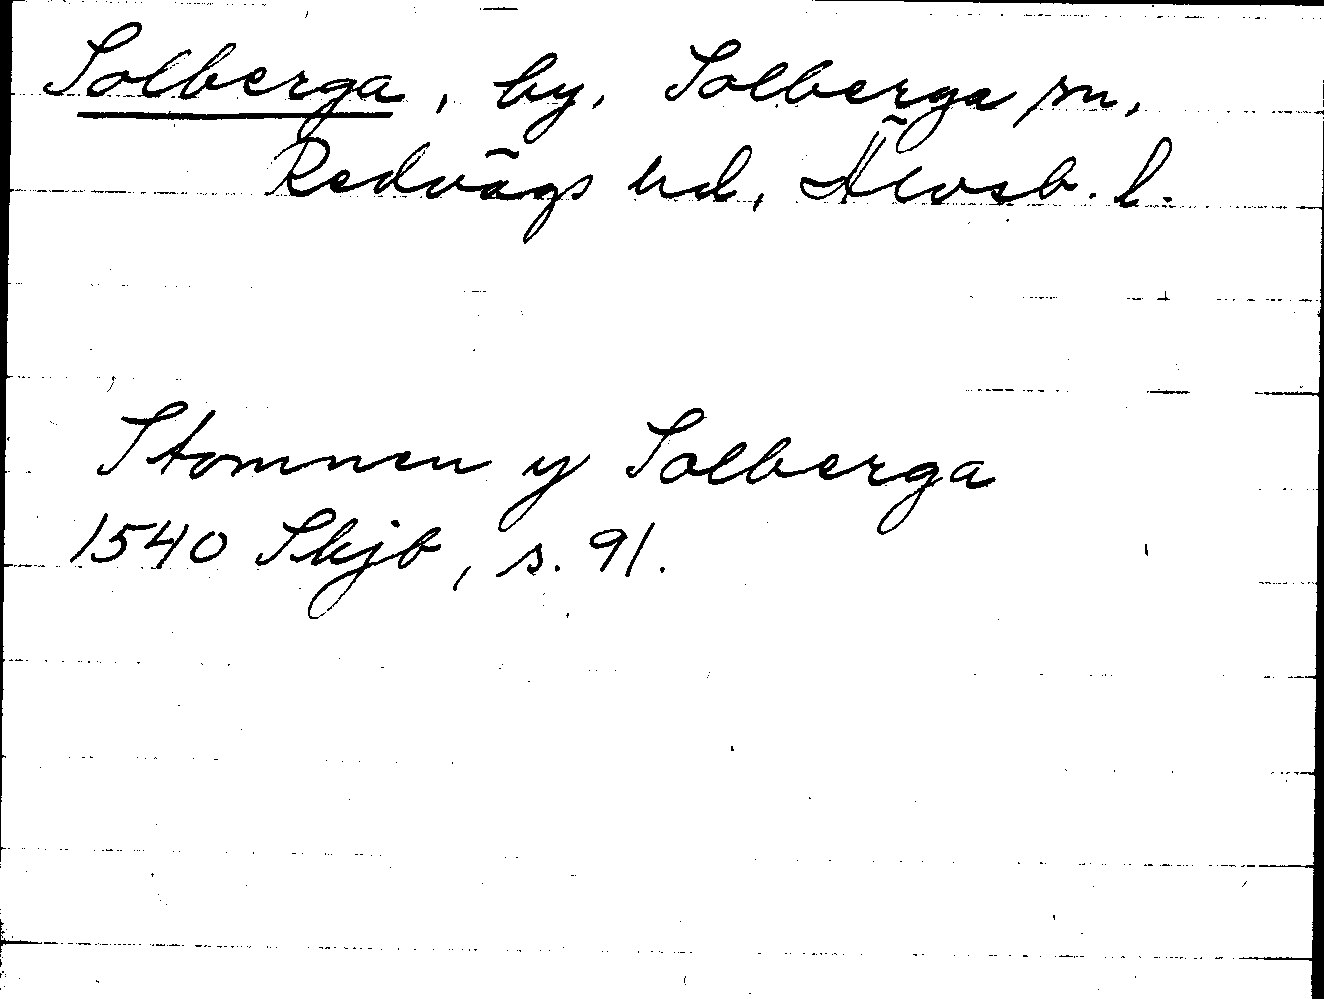 Solberga, by, Solberga sn,
Redvägs hd, Älvsb. l.
Stommen y Solberga
1540 Skjb, s. 91.